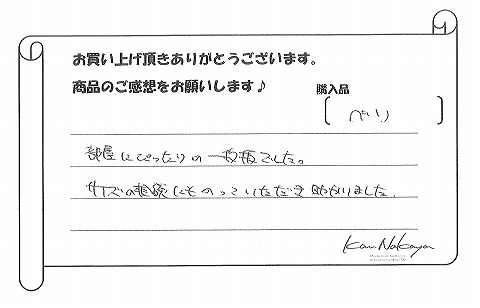 お買い上げ頂きありがとうございます。
商品のご感想をお願いします♪
購入品
部屋にぴったりの一枚板でした。
サイズの相談にものっていただき助かりました。
Kan Nakaya